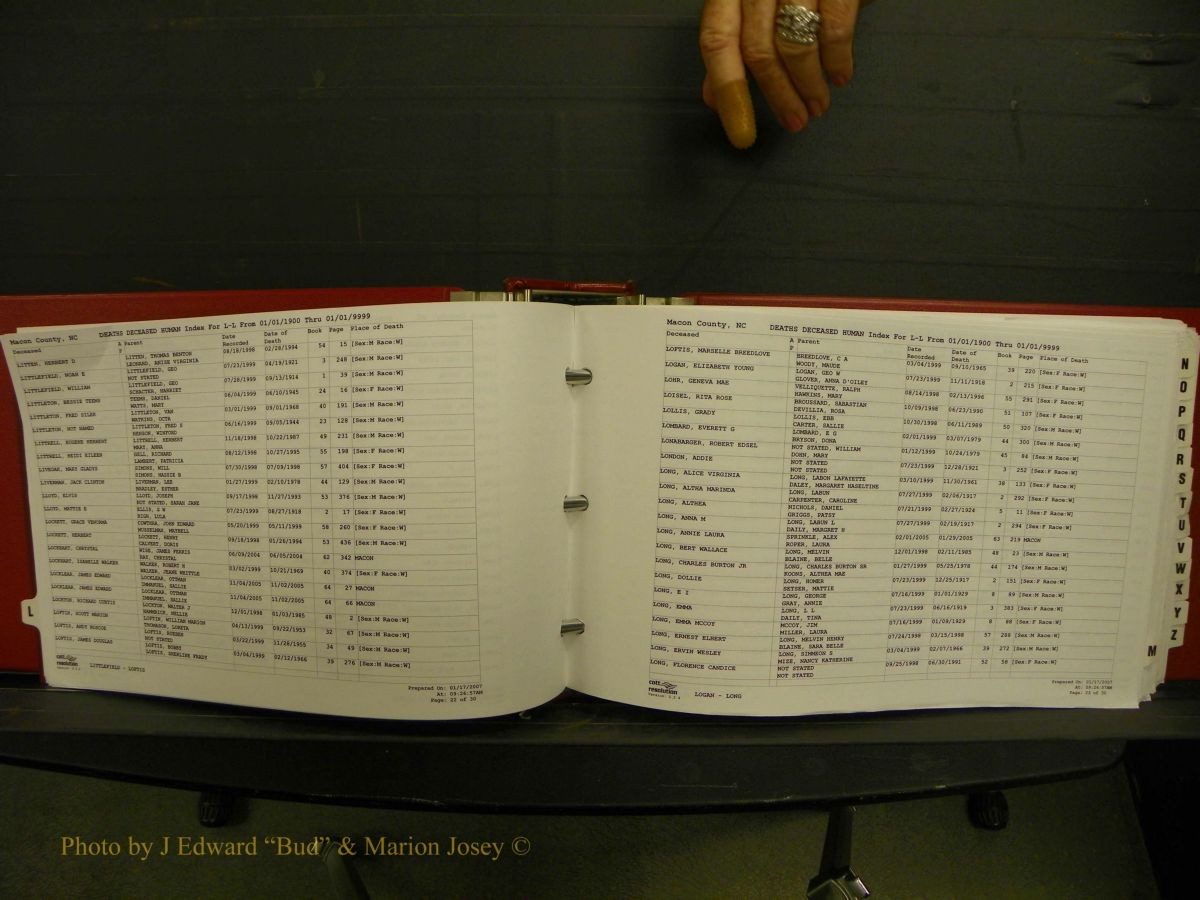 Macon County, NC DEATHS DECEASED HUMAN Index For L-L From 01/01/1900 Thru 01/01/9999
Deceased A Parent Date Recorded Date of Death Book Page Place of Death
P
LITTEN, HERBERT D LITTEN, THOMAS BENTON 08/18/1998 02/28/1994 54 15 [Sex:M Race:W]
LEONARD, ANISE VIRGINIA
LITTLEFIELD, NOAH E LITTLEFIELD, GEO 07/23/1999 04/19/1921 3 248 [Sex:M Race:W]
NOT STATED
LITTLEFIELD, WILLIAM LITTLEFIELD, GEO 07/28/1999 09/13/1914 1 39 [Sex:M Race:W]
SCHACTER, HARRIET
LITTLETON, BESSIE TEEMS TEEMS, DANIEL 06/04/1999 06/10/1945 24 16 [Sex:F Race:W]
WATTS, MARY
LITTLETON, FRED SILER LITTLETON, VAN 03/01/1999 09/01/1968 40 191 [Sex:M Race:W]
WATKINS, OCTA
LITTLETON, NOT NAMED LITTLETON, FRED S 06/16/1999 09/05/1944 23 128 [Sex:M Race:W]
HENSON, WINFORD
LITTRELL, EUGENE HERBERT LITTRELL, HERBERT 11/18/1998 10/22/1987 49 231 [Sex:M Race:W]
MARY, ANNA
LITTRELL, HEIDI EILEEN GELL, RICHARD 08/12/1998 10/27/1995 55 198 [Sex:F Race:W]
LAMBERT, PATRICIA
LIVEOAK, MARY GLADYS SIMONS, WILL 07/30/1998 07/09/1998 57 404 [Sex:F Race:W]
SIMONS, MASSIE B
LIVERMAN, JACK CLINTON LIVERMAN, LEE 01/27/1999 02/10/1978 44 129 [Sex:M Race:W]
BRADLEY, ESTHER
LLOYD, ELVIS LLOYD, JOSEPH 09/17/1998 11/27/1993 53 376 [Sex:M Race:W]
NOT STATED, SARAH JANE
LLOYD, MATTIE E ELLIS, Z W 07/23/1999 08/27/1918 2 17 [Sex:F Race:W]
HIGH, LULA
LOCKETT, GRACE VENORMA COWDNIA, JOHN EDWARD 05/20/1999 05/11/1999 58 260 [Sex:F Race:W]
MUSSELMAN, MAYBELL
LOCKETT, HERBERT LOCKETT, HENRY 09/18/1998 01/26/1994 53 436 [Sex:M Race:W]
CALVERT, DORIS
LOCKHART, CHRYSTAL WISE, JAMES FERRIS 06/09/2004 06/05/2004 62 342 MACON
RAY, CHRYSTAL
LOCKHART, ISABELLE WALKER WALKER, ROBERT H 03/02/1999 10/21/1969 40 374 [Sex:F Race:W]
WALKER, JEANE WHITTLE
LOCKLEAR, JAMES EDWARD LOCKLEAR, OTTMAN 11/04/2005 11/02/2005 64 27 MACON
IMMANUEL, SALLIE
LOCKLEAR, JAMES EDWARD LOCKLEAR, OTTMAN 11/04/2005 11/02/2005 64 66 MACON
IMMANUEL, SALLIE
LOCKTON, RICHARD CURTIS LOCKTON, WALTER J 12/01/1998 01/03/1985 48 2 [Sex:M Race:W]
HAMMRICK, NELLIE
LOFTIN, SCOTT MARION LOFTIN, WILLIAM MARION 04/13/1999 09/22/1953 32 67 [Sex:M Race:W]
THOMASON, LORETA
LOFTIS, ANDY ROSCOE LOFTIS, RUEBEN 03/22/1999 11/28/1955 34 49 [Sex:M Race:W]
NOT STATED
LOFTIS, JAMES DOUGLAS LOFTIS, BOBBY 03/04/1999 02/12/1966 39 276 [Sex:M Race:W]
LOFTIS, SHERLINE FRADY
cott resolution
LITTLEFIELD - LOFTIS
Prepared On: 01/17/2007
At: 09:26:57AM
Page: 22 of 30
L
Macon County, NC DEATHS DECEASED HUMAN Index For L-L From 01/01/1900 Thru 01/01/9999
Deceased A Parent Date Recorded Date of Death Book Page Place of Death
P
LOFTIS, MARSELLE BREEDLOVE BREEDLOVE, C A 03/04/1999 09/10/1965 39 220 [Sex:F Race:W]
WOODY, MAUDE
LOGAN, ELIZABETH YOUNG LOGAN, GEO W 07/23/1999 11/11/1918 2 215 [Sex:F Race:W]
GLOVER, ANNA D'OILEY
LOHR, GENEVA MAE VELLIQUETTE, RALPH 08/14/1998 02/13/1996 55 291 [Sex:F Race:W]
HAWKINS, MARY
LOISEL, RITA ROSE BROUSSARD, SABASTIAN 10/09/1998 06/23/1990 51 107 [Sex:F Race:W]
DEVILLIA, ROSA
LOLLIS, GRADY LOLLIS, EBB 10/30/1998 06/11/1989 50 320 [Sex:M Race:W]
CARTER, SALLIE
LOMBARD, EVERETT G LOMBARD, E G 02/01/1999 03/07/1979 44 300 [Sex:M Race:W]
BRYSON, DONA
LONABARGER, ROBERT EDSEL NOT STATED, WILLIAM 01/12/1999 10/24/1979 45 84 [Sex:M Race:W]
DOHN, MARY
LONDON, ADDIE NOT STATED 07/23/1999 12/28/1921 3 252 [Sex:F Race:W]
NOT STATED
LONG, ALICE VIRGINIA LONG, LABON LAFAYETTE 03/10/1999 11/30/1961 38 133 [Sex:F Race:W]
DALEY, MARGARET HASELTINE
LONG, ALTHA MARINDA LONG, LABUN 07/27/1999 02/06/1917 2 292 [Sex:F Race:W]
CARPENTER, CAROLINE
LONG, ALTHEA NICHOLS, DANIEL 07/21/1999 02/27/1924 5 11 [Sex:F Race:W]
GRIGGS, PATSY
LONG, ANNA M LONG, LABUN L 07/27/1999 02/19/1917 2 294 [Sex:F Race:W]
DAILY, MARGRET H
LONG, ANNIE LAURA SPRINKLE, ALEX 02/01/2005 01/29/2005 63 219 MACON
ROPER, LAURA
LONG, BERT WALLACE LONG, MELVIN 12/01/1998 02/11/1985 48 23 [Sex:M Race:W]
BLAINE, BELLE
LONG, CHARLES BURTON JR LONG, CHARLES BURTON SR 01/27/1999 05/25/1978 44 174 [Sex:M Race:W]
KOONS, ALTHEA MAE
LONG, DOLLIE LONG, HOMER 07/23/1999 12/25/1917 2 151 [Sex:F Race:W]
SEYSER, MATTIE
LONG, E I LONG, GEORGE 07/16/1999 01/01/1929 8 89 [Sex:M Race:W]
GRAY, ANNIE
LONG, EMMA LONG, L L 07/23/1999 06/16/1919 3 383 [Sex:F Race:W]
DAILY, TINA
LONG, EMMA MCCOY MCCOY, JIM 07/16/1999 01/09/1929 8 88 [Sex:F Race:W]
MILLER, LAURA
LONG, ERNEST ELBERT LONG, MELVIN HENRY 07/24/1998 03/15/1998 57 288 [Sex:M Race:W]
BLAINE, SARA BELLE
LONG, ERVIN WESLEY LONG, SIMMEON S 03/04/1999 02/07/1966 39 272 [Sex:M Race:W]
MIZE, NANCY KATHERINE
LONG, FLORENCE CANDICE NOT STATED 09/25/1998 06/30/1991 52 58 [Sex:F Race:W]
NOT STATED
cott resolution
LOGAN - LONG
Prepared On: 01/17/2007
At: 09:26:57AM
Page: 23 of 30
N
O
P
Q
R
S
T
U
V
W
X
Y
Z
M
Photo by J Edward “Bud” & Marion Josey ©